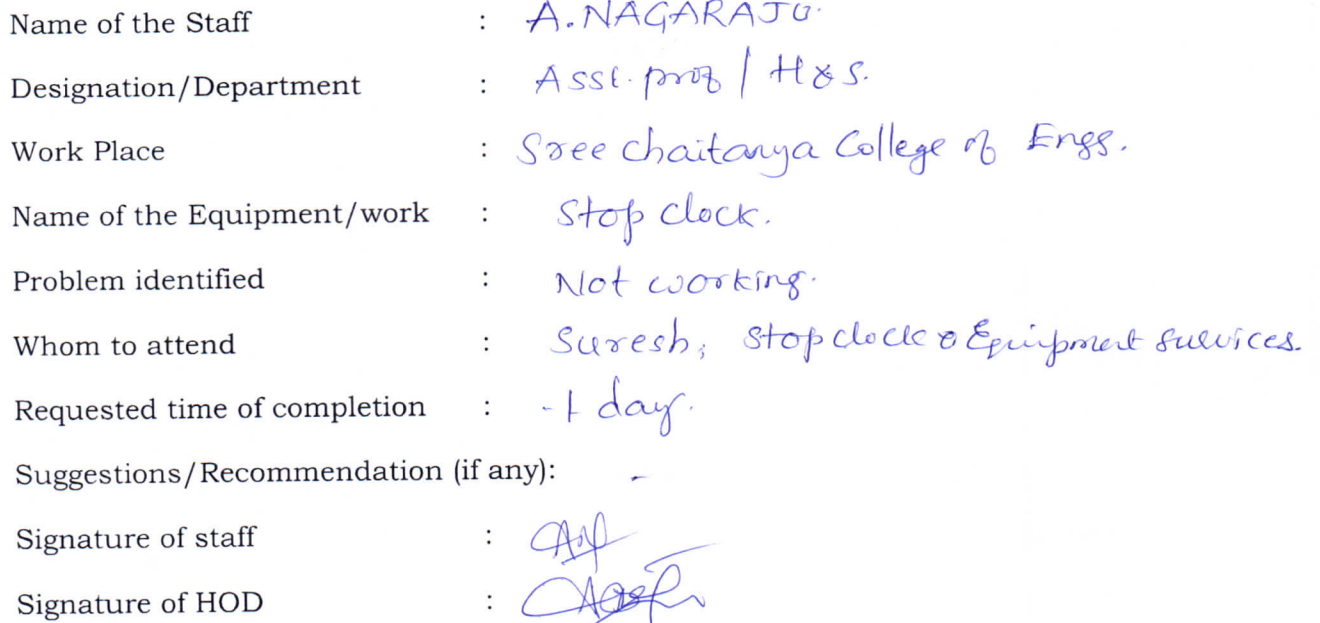 Name of the Staff : A. NAGARAJU.
Designation/Department : Asst. prof / H & S.
Work Place : Sree Chaitanya College of Engg.
Name of the Equipment/work : Stop clock.
Problem identified : Not working.
Whom to attend : Suresh, Stop clock & Equipment Survices.
Requested time of completion : -1 day.
Suggestions/Recommendation (if any): -
Signature of staff :
Signature of HOD :